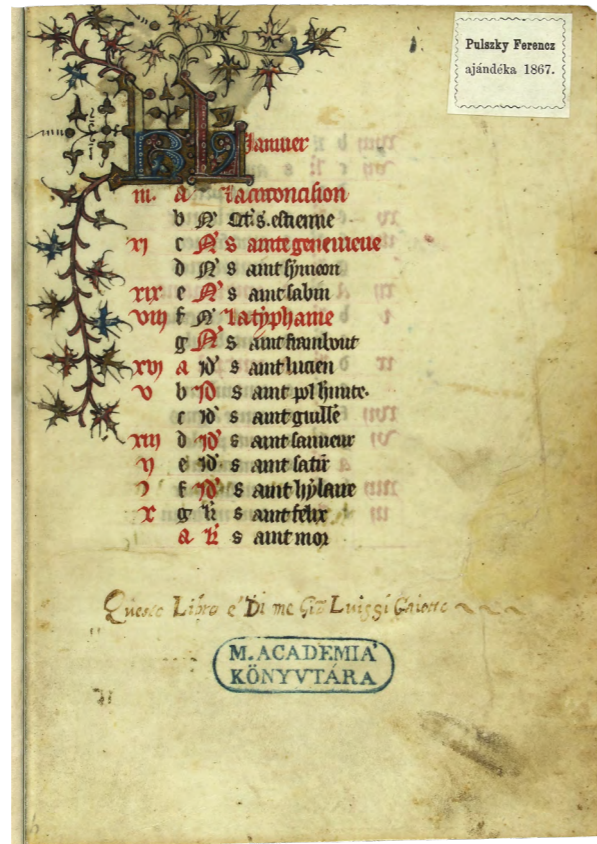 Pulszky Ferencz
ajándéka 1867.
KL Januier
iii. a La circoncision
b N Oct. s. estienne
xi c N s aintegenevieue
d N s aint symeon
xix e N s aint sabin
viii f N La typhanie
g N s aint frambout
xvi a id s aint lucien
v b id s aint pol hmite.
c id s aint guille
xiii d id s aint sauueur
ii e id s aint satir
f id s aint hylaire
x g kl s aint felix
a kl s aint mor
Questo Libro e' Di me Gio Luiggi
M. ACADEMIA
KÖNYVTÁRA